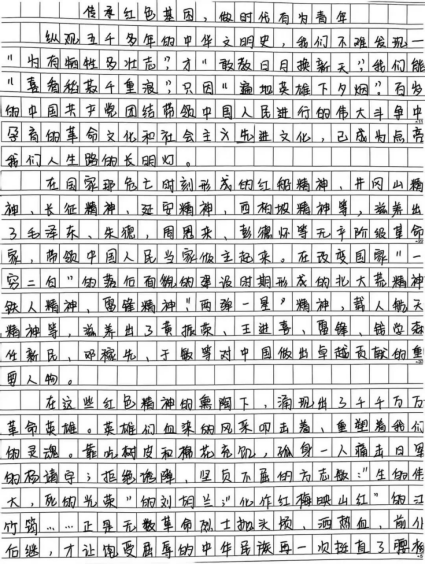 传承红色基因，做时代有为青年
纵观五千多年的中华文明史，我们不难发现一
"为有牺牲多壮志"才"敢教日月换新天"；我们能
"喜看稻菽千重浪"，只因"遍地英雄下夕烟"。在党
的中国共产党团结带领中国人民进行的伟大斗争中
孕育的革命文化和社会主义先进文化，已成为点亮
我们人生路的长明灯。
在国家那危亡时刻形成的红船精神、井冈山精
神、长征精神、延安精神、西柏坡精神等，滋养出
了毛泽东、朱德，周恩来、彭德怀等无产阶级革命
家，带领中国人民当家做主起来。在改变国家"一
穷二白"的落后面貌的建设时期形成的北大荒精神
铁人精神，雷锋精神"两弹一星"精神，载人航天
精神等，滋养出了黄振荣、王进喜、雷锋、钱学森
任新民、邓稼先、于敏等对中国做出卓越贡献的重
要人物。
在这些红色精神的熏陶下，涌现出了千千万万
革命英雄。英雄们血染的风采叩击着、重塑着我们
的灵魂。靠吃树皮和棉花充饥，孤身一人痛击日军
的杨靖宇；拒绝诱降，坚贞不屈的方志敏；"生的伟
大，死的光荣"的刘胡兰；"化作红梅映山红"的江
竹筠……正是无数革命烈士抛头颅，洒热血，前仆
后继，才让饱受屈辱的中华民族再一次挺直了腰